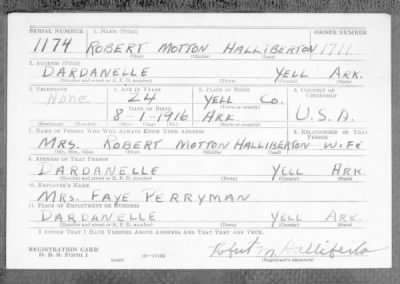 SERIAL NUMBER 1. NAME (Print) ORDER NUMBER
1174 ROBERT MOTTON HALLIBERTON 1711
(First) (Middle) (Last)
2. ADDRESS (Print)
DARDANELLE YELL ARK.
(Number and street or R. F. D. number) (Town) (County) (State)
3. TELEPHONE 4. AGE IN YEARS 5. PLACE OF BIRTH 6. COUNTRY OF CITIZENSHIP
None 24 YELL CO.
DATE OF BIRTH
8-1-1916 ARK. U.S.A.
7. NAME OF PERSON WHO WILL ALWAYS KNOW YOUR ADDRESS 8. RELATIONSHIP OF THAT PERSON
MRS. ROBERT MOTTON HALLIBERTON WIFE
(Mr., Mrs., Miss) (First) (Middle) (Last)
9. ADDRESS OF THAT PERSON
DARDANELLE YELL ARK.
(Number and street or R. F. D. number) (Town) (County) (State)
10. EMPLOYER'S NAME
MRS. FAYE PERRYMAN
11. PLACE OF EMPLOYMENT OR BUSINESS
DARDANELLE YELL ARK.
(Number and street or R. F. D. number) (Town) (County) (State)
I AFFIRM THAT I HAVE VERIFIED ABOVE ANSWERS AND THAT THEY ARE TRUE.
REGISTRATION CARD
D. S. S. Form 1 (over) (Registrant's signature)
Robert M. Halliberton